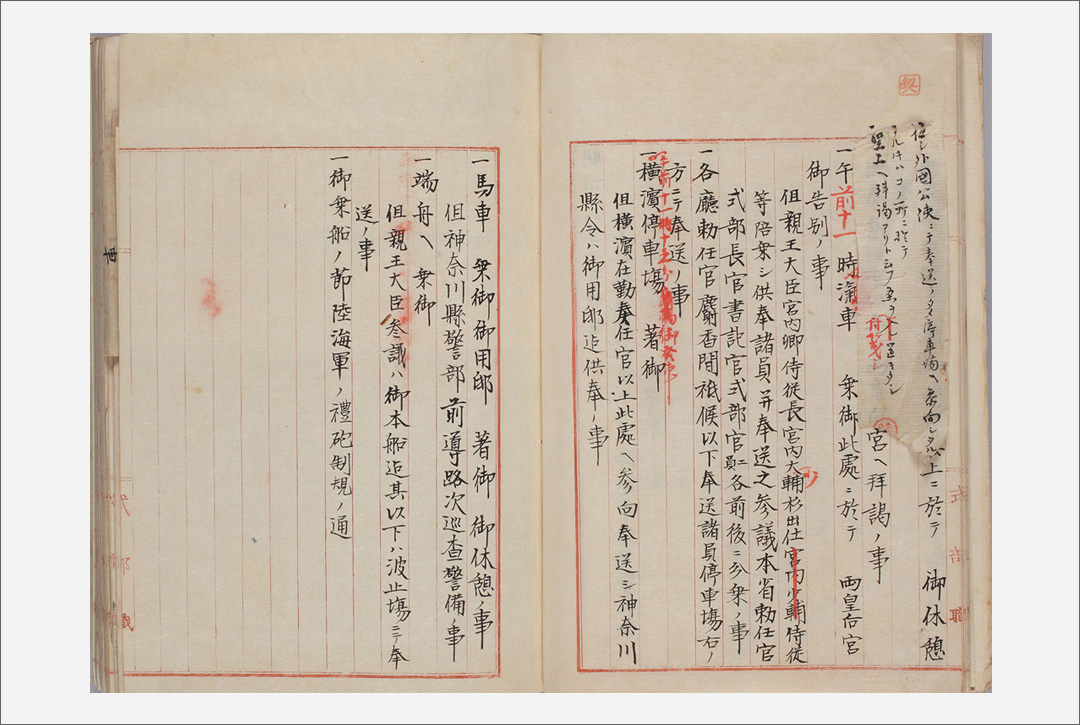 契
但シ外國公使ニテ奉送ノタメ停車場ヘ参向シタル
コノ所ニ於テ
聖上ヘ拝謁アリ
上ニ於テ 御休憩
宮ヘ拝謁ノ事
一午前十一時滊車 乗御此處ニ於テ 両皇后宮
御告別ノ事
但親王大臣宮内卿侍従長宮内大輔杉出仕宮内少輔侍従
等陪乗シ供奉諸員并奉送之参議本省勅任官
式部長官書記官式部官員各前後ニ分乗ノ事
一各廳勅任官麝香間祗候以下奉送諸員停車場右ノ
方ニテ奉送ノ事
午前十一時十五分
一横濱停車場 著御
但横濱在勤奏任官以上此處ヘ参向奉送シ神奈川
縣令ハ御用邸迄供奉ノ事
一馬車 乗御御用邸 著御 御休憩ノ事
但神奈川縣警部前導路次巡査警備ノ事
一端舟ヘ 乗御
但親王大臣参議ハ御本船迄其以下ハ波止場ニテ奉
送ノ事
一御乗船ノ節陸海軍ノ禮砲制規ノ通
式部職